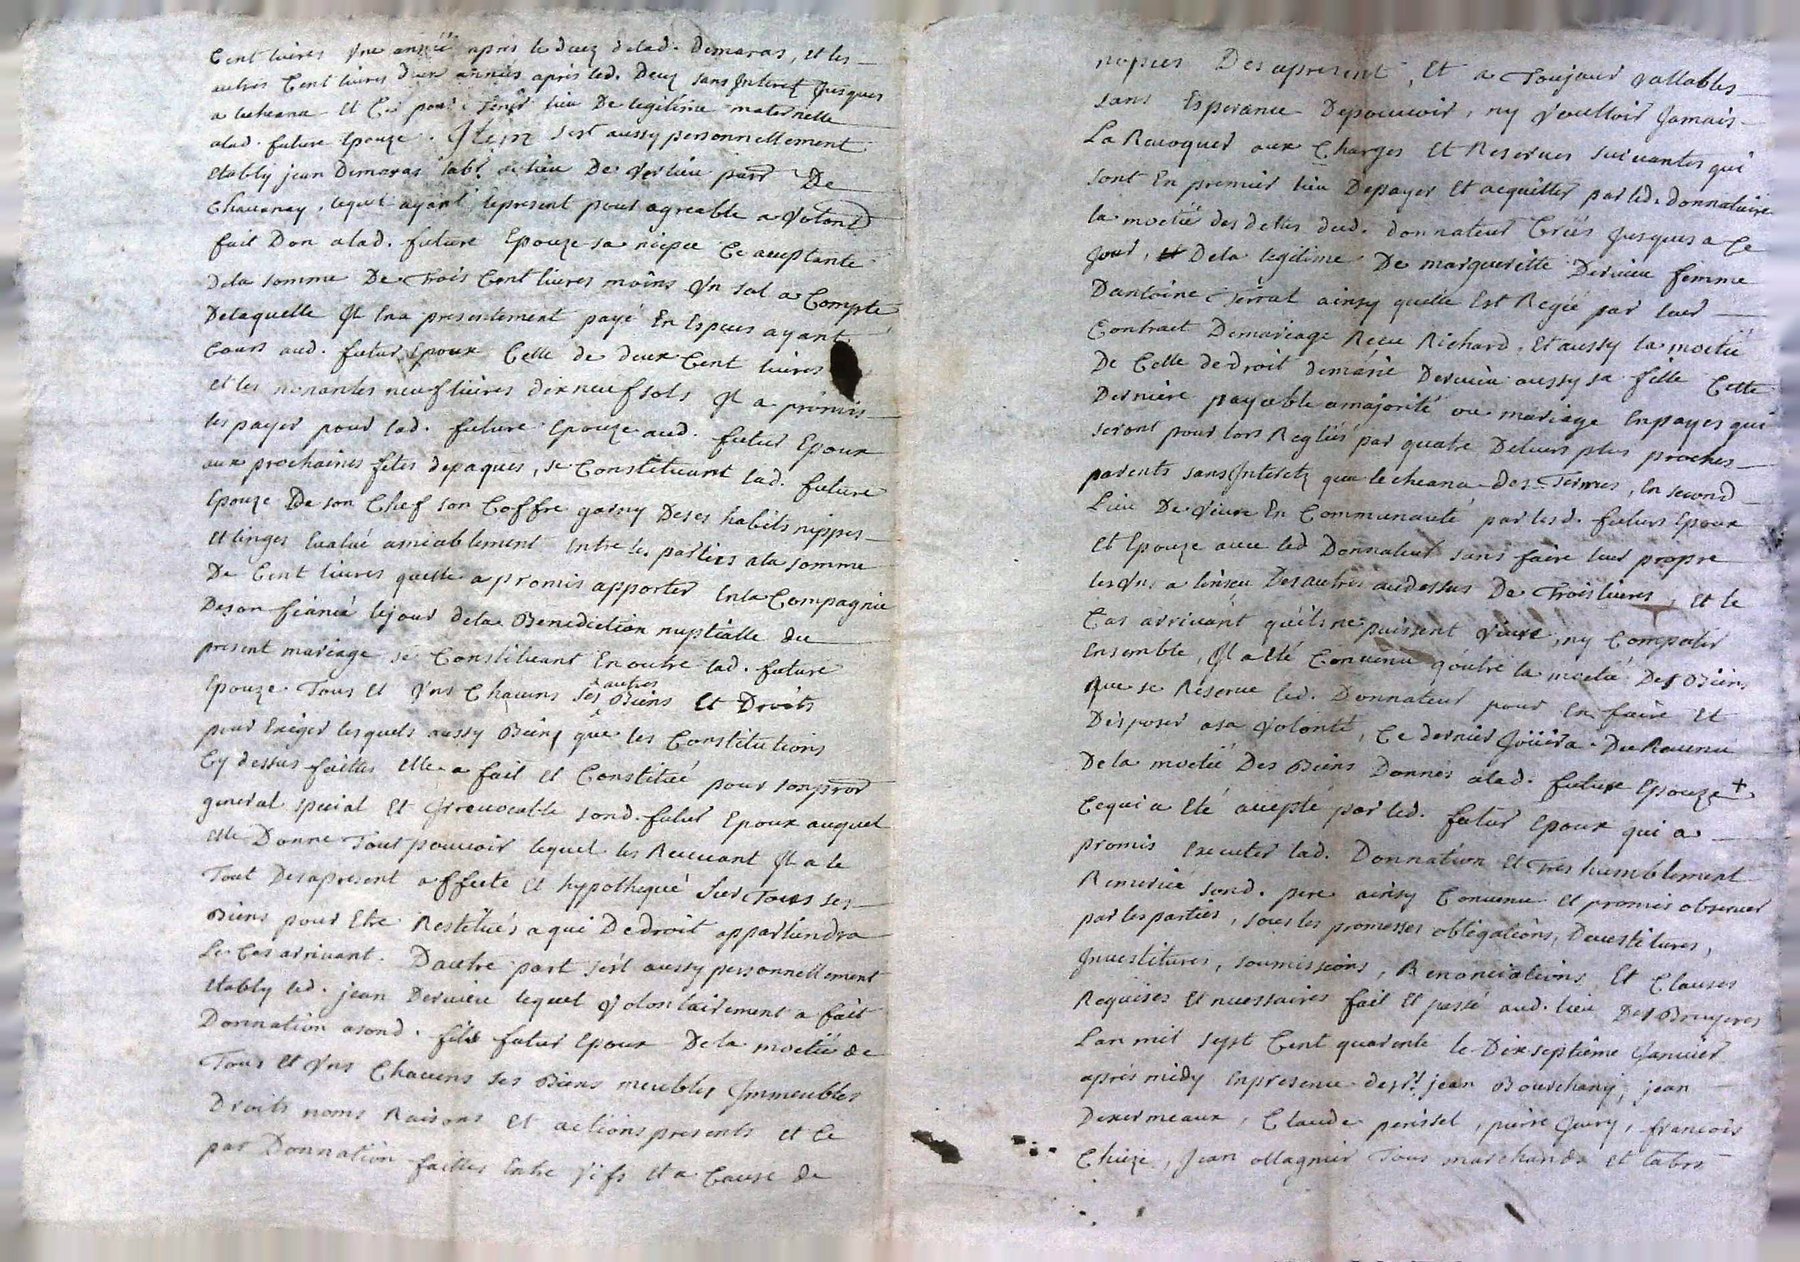 Cent livres Une année après le decz delad. Demaras, et les
autres Cent livres deux années après led. Decz sans Jnterez Jusques
a lecheana et Ce pour Tenir lieu De legitime maternelle
alad. future Epouze. Jtem s'est aussy personnellement
Etably jean Demaras labr. du lieu De Verlieu parr. De
Chavanay, lequel ayant lepresent pour agreable a volont.
fait Don alad. future Epouze sa niepce Ce acceptante
Dela somme De Trois Cent livres moins Un sol a Compte
Delaquelle Jl Ena presentement payé En Especes ayant
Cours aud. futur Epoux Celle de deux Cent livres
et les nonantes neuf livres dix neuf sols Jl a promis
les payer pour lad. future Epouze aud. futur Epoux
aux prochaines fetes depaques, se Constituant lad. future
Epouze De son Chef son Coffre garny Deses habits nippes
Et linges Evalué amiablement Entre les parties ala somme
De Cent livres quelle a promis apporter Enla Compagnie
Deson fiancé lejour dela Benediction nuptialle du
present mariage se Constituant En outre lad. future
Epouze Tous et Uns Chacuns ses autres Biens et Droits
pour Exiger lesquels aussy Bien que les Constitutions
Cy dessus faittes elle a fait et Constitué pour sonprocr
general special et Jrrevocable sond. futur Epoux auquel
elle Donne Tout pouvoir lequel les Recevant Jl a le
Tout Desapresent affecté et hypothequé sur Tous ses
Biens pour Etre Restitués a qui Dedroit appartiendra
Le Cas arrivant. Dautre part s'est aussy personnellement
Etably led. jean Dervieu lequel Volontairement a fait
Donnation asond. fils futur Epoux Dela moetié de
Tous et Uns Chacuns ses Biens meubles Jmmeubles
Droits noms Raisons et actions presents et Ce
par Donnation faittes Entre Vifs et a Cause de
nopces Desapresent, Et a Toujour vallables
sans Esperance Depouvoir, ny Voulloir Jamais
La Revoquer aux Charges et Reserves suivantes qui
sont En premier lieu Depayer et acquitter par led. donnataire
la moetié des dettes dud. donnateur Créés Jusques a Ce
Jour, Dela legitime De margueritte Dervieu femme
Dantoine serrat ainsy quelle Est Reglé par leur
Contract Demariage Receu Richard, Et aussy la moetié
De Celle dedroit demarie Dervieu aussy sa fille Cette
Derniere payable amajorité ou mariage Enpayes qui
seront pour lors Reglées par quatre Deleurs plus proches
parents sansJnteretz que lecheana des Termes, En second
Lieu De vivre En Communauté par lesd. futurs Epoux
et Epouze avec led Donnateur sans faire leur propre
lesUns a linscu Desautres audessus De Trois livres, et le
Cas arrivant quils ne puissent vivre, ny Compatir
Ensemble, Jl a eté Convenu qoutre la moetié Des Biens
que se Reserve led. Donnateur pour En faire et
Disposer asa Volonté, Ce dernier Joüira Du Revenu
Dela moetié Des Biens Donnés alad. future Epouze +
Cequi a Eté accepté par led. futur Epoux qui a
promis Executer lad. Donnation et Tres humblement
Remercié sond. pere ainsy Convenu et promis observer
par les parties, sous les promesses obligations, Devestitures,
Jnvestitures, soumissions, Renonciations, Et Clauses
Requises et necessaires fait et passé aud. lieu Des Bruyeres
Lan mil sept Cent quarente le Dix septième Janvier
après midy Enpresence desrs. jean Bouchany, jean
Dexermeaux, Claude perissel, pierre Jury, francois
Chieze, Jean ollagnier Tous marchands et labrs